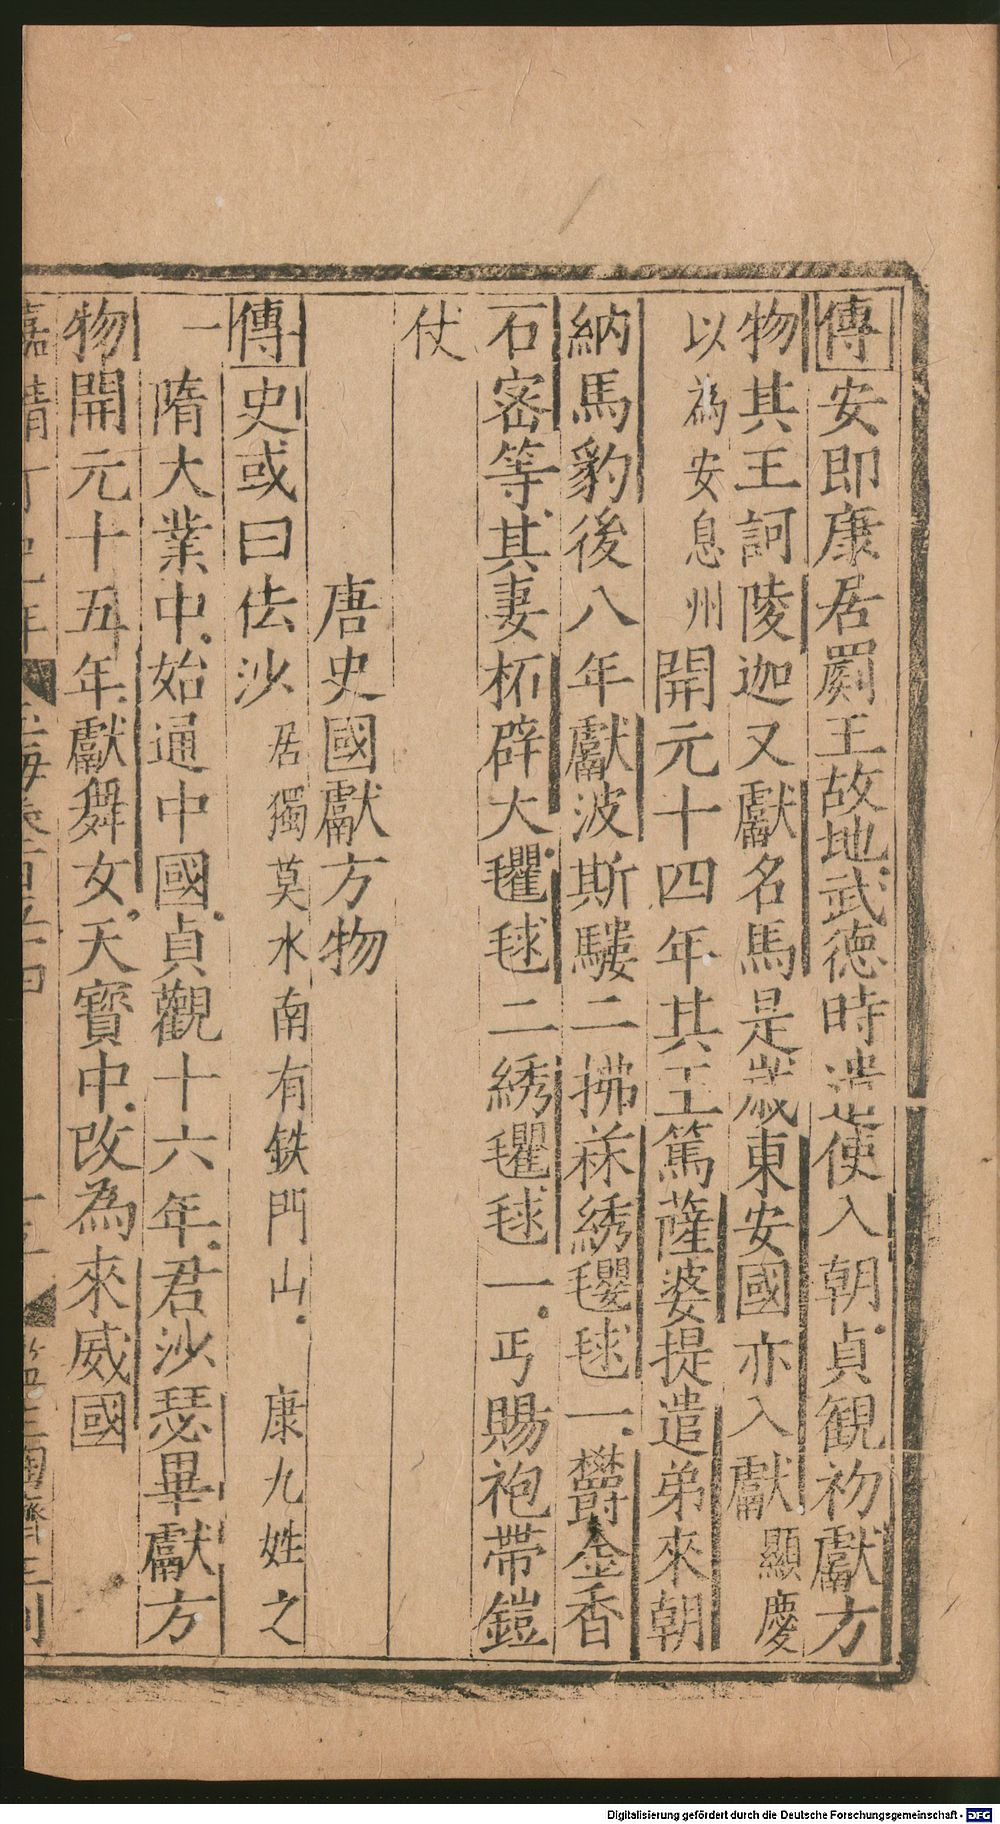 傳安即康居罽王故地武德時遣使入朝貞観初獻方
物其王訶陵迦又獻名馬是歲東安國亦入獻顯慶
以為安息州開元十四年其王篤薩婆提遣弟來朝
納馬豹後八年獻波斯䮫二拂菻綉氍毬一欝金香
石宻等其妻柘辟大氍毬二綉氍毬一丐賜袍帶鎧
仗
唐史國獻方物
傳史或曰佉沙居獨莫水南有鉄門山康九姓之
一隋大業中始通中國貞觀十六年君沙瑟畢獻方
物開元十五年獻舞女天寳中改為來威國
嘉靖丁巳年 玉海卷百五十四 十五 監生陶濟生刊
Digitalisierung gefördert durch die Deutsche Forschungsgemeinschaft - DFG